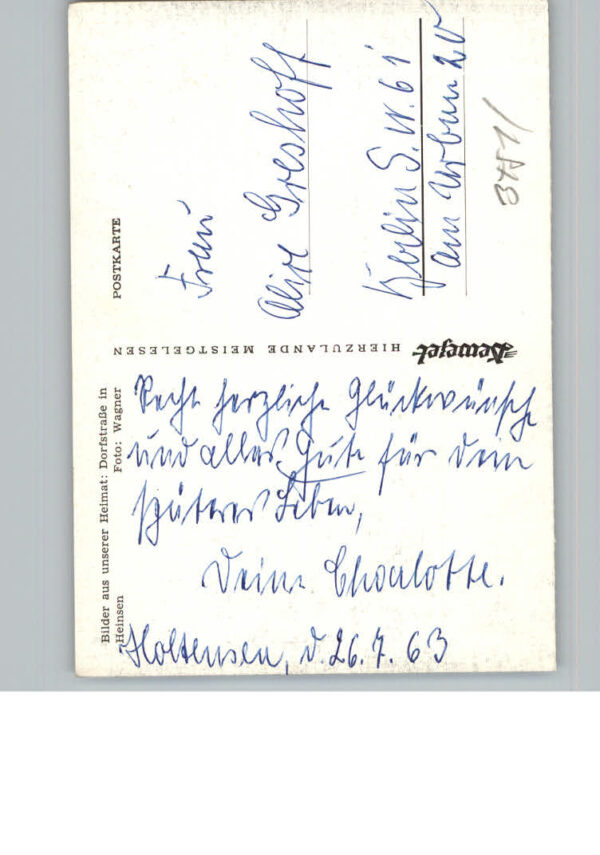 Bilder aus unserer Heimat: Dorfstraße in
Heinsen
Foto: Wagner
POSTKARTE
Dewezet
HIERZULANDE MEISTGELESEN
Recht herzliche Glückwünsche
und alles Gute für dein
späteres Leben,
Deine Charlotte.
Holtensen, d. 26.7.63
Frau
Alice Greshoff
Berlin S.W. 61
am Urban 20